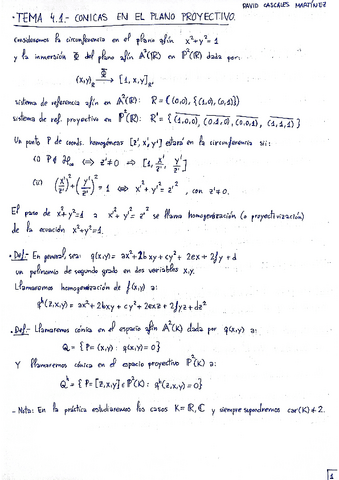 DAVID CASCALES MARTÍNEZ
• TEMA 4.1.- CONICAS EN EL PLANO PROYECTIVO.
Consideremos la circunferencia en el plano afín x²+y²=1
y la inmersión Φ del plano afín A²(ℝ) en P²(ℝ) dada por:
(x,y)_R →^Φ [1,x,y]_R'
sistema de referencia afín en A²(ℝ): R = {(0,0), {(1,0), (0,1)}}
sistema de ref. proyectivo en P²(ℝ): R' = {(1,0,0), (0,1,0), (0,0,1), (1,1,1)}
Un punto P de coords. homogéneas [z',x',y'] estará en la circunferencia sii:
(i) P ∉ H∞ ⟺ z'≠0 ⟹ [1, x'/z', y'/z']
(ii) (x'/z')² + (y'/z')² = 1 ⟺ x'² + y'² = z'², con z'≠0.
El paso de x²+y²=1 a x'²+y'²=z'² se llama homogeneización (o proyectivización)
de la ecuación x²+y²=1.
• Def.- En general, sea: q(x,y) = ax²+2bxy+cy²+2ex+2fy+d
un polinomio de segundo grado en dos variables x,y.
Llamaremos homogeneización de f(x,y) a:
q^h(z,x,y) = ax²+2bxy+cy²+2exz+2fyz+dz²
• Def.- Llamaremos cónica en el espacio afín A²(K) dada por q(x,y) a:
Q = {P=(x,y): q(x,y)=0}
Y llamaremos cónica en el espacio proyectivo P²(K) a:
Q^h = {P=[z,x,y]∈P²(K): q^h(z,x,y)=0}
- Nota: En la práctica estudiaremos los casos K=ℝ,ℂ y siempre supondremos car(K)≠2.
1